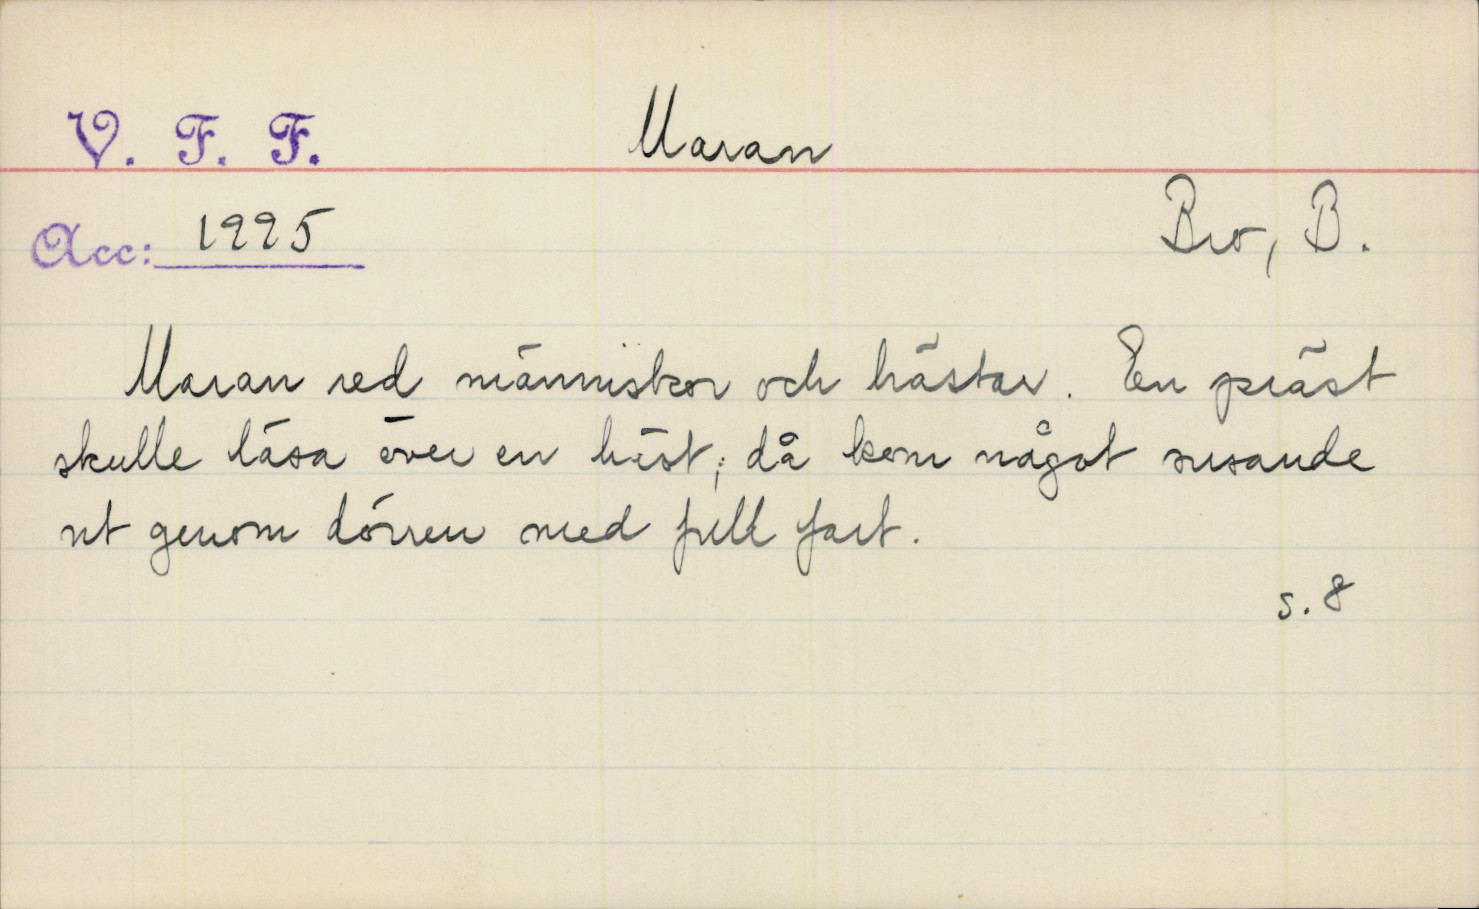 V. F. F.
Maran
Acc: 1225
Bro, B.
Maran red människor och hästar. En präst
skulle läsa över en häst; då kom något susande
ut genom dörren med full fart.
s. 8